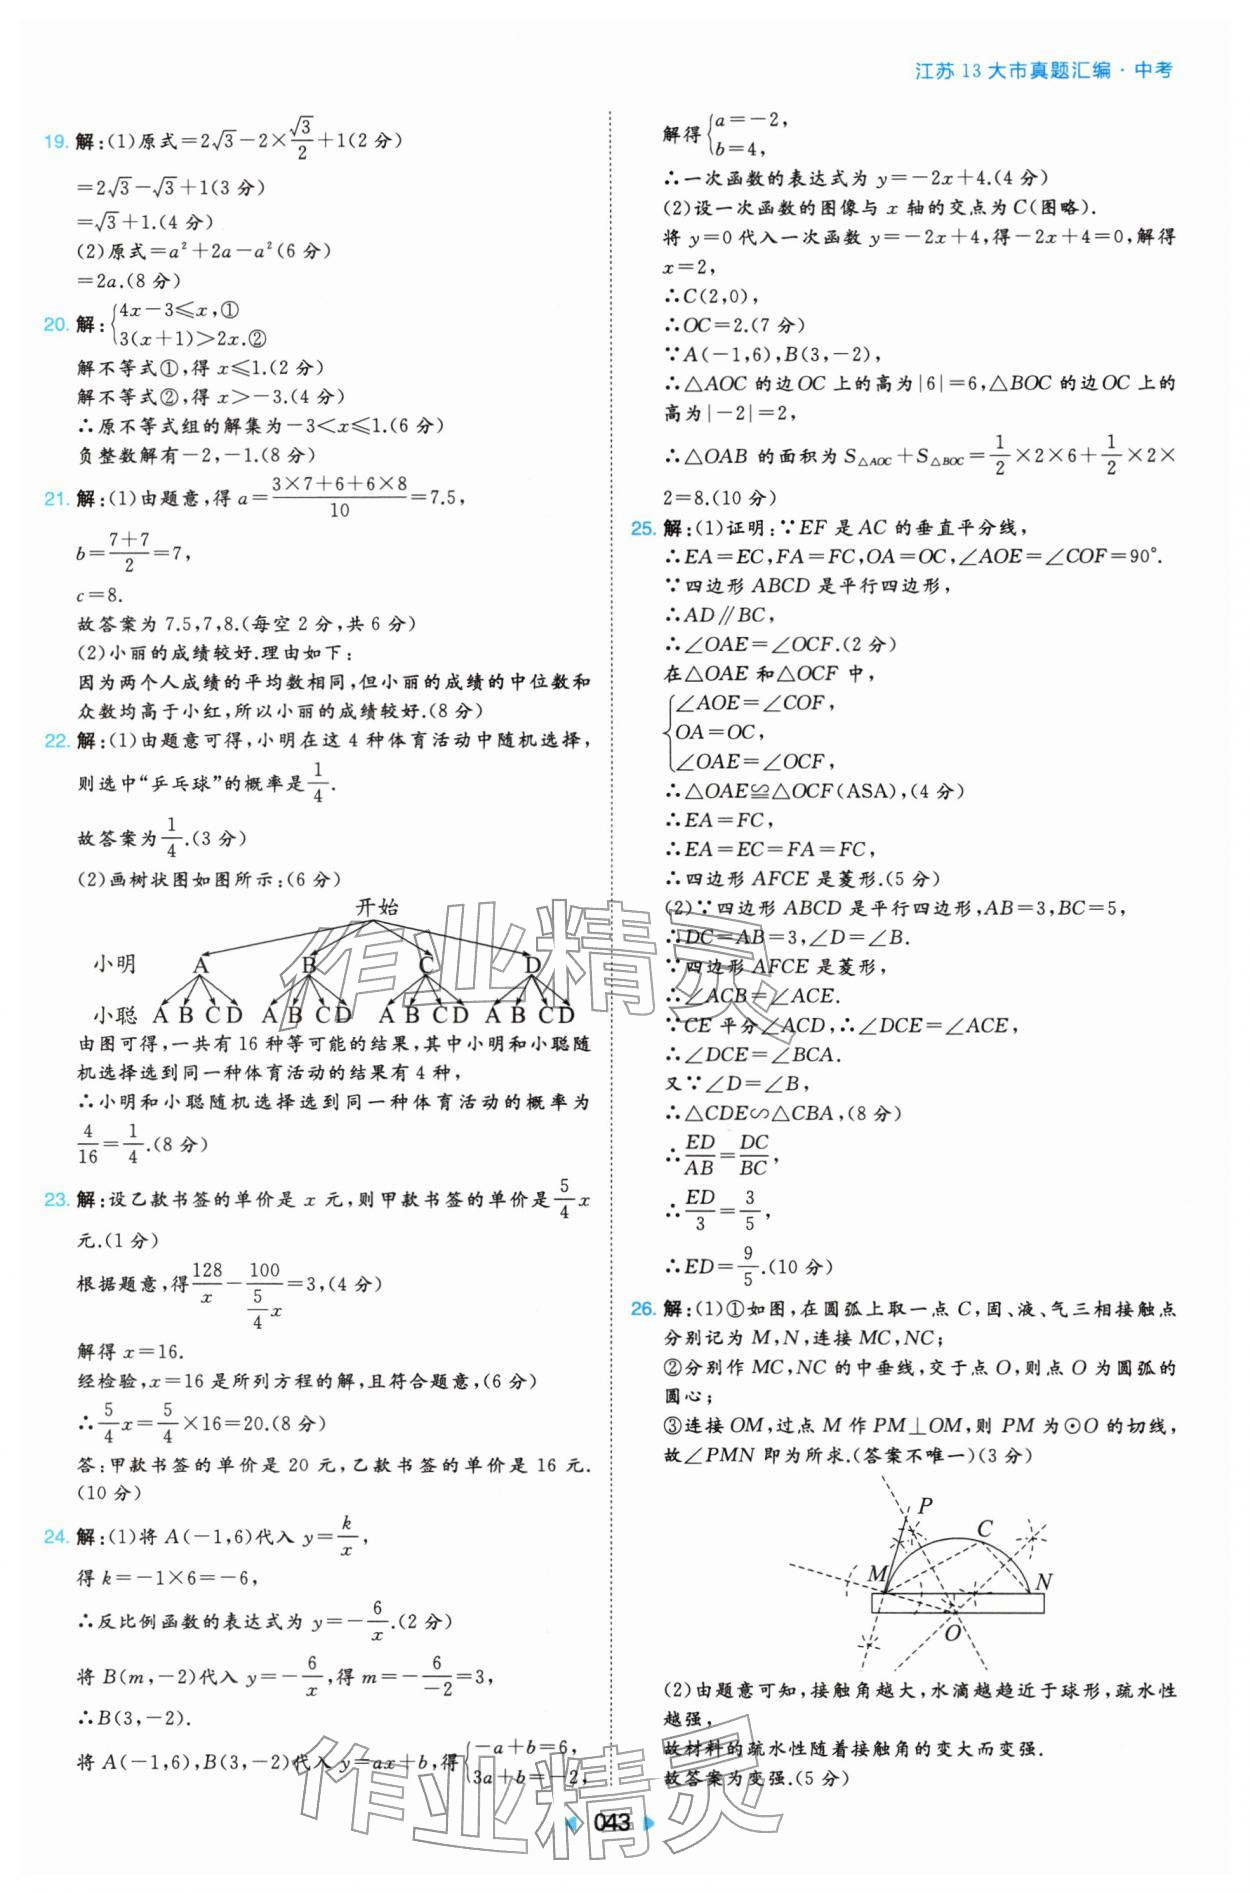 江苏 13 大市真题汇编·中考
19. 解:(1)原式=2√3-2×√3/2+1(2 分)
=2√3-√3+1(3 分)
=√3+1.(4 分)
(2)原式=a²+2a-a²(6 分)
=2a.(8 分)
20. 解:{4x-3≤x,①
3(x+1)>2x.②
解不等式①,得 x≤1.(2 分)
解不等式②,得 x>-3.(4 分)
∴原不等式组的解集为-3<x≤1.(6 分)
负整数解有-2,-1.(8 分)
21. 解:(1)由题意,得 a=(3×7+6+6×8)/10=7.5,
b=(7+7)/2=7,
c=8.
故答案为 7.5,7,8.(每空 2 分,共 6 分)
(2)小丽的成绩较好.理由如下:
因为两个人成绩的平均数相同,但小丽的成绩的中位数和
众数均高于小红,所以小丽的成绩较好.(8 分)
22. 解:(1)由题意可得,小明在这 4 种体育活动中随机选择,
则选中“乒乓球”的概率是1/4.
故答案为1/4.(3 分)
(2)画树状图如图所示:(6 分)
开始
小明 A B C D
小聪 A B C D A B C D A B C D A B C D
由图可得,一共有 16 种等可能的结果,其中小明和小聪随
机选择选到同一种体育活动的结果有 4 种,
∴小明和小聪随机选择选到同一种体育活动的概率为
4/16=1/4.(8 分)
23. 解:设乙款书签的单价是 x 元,则甲款书签的单价是5/4x
元.(1 分)
根据题意,得128/x-100/(5/4x)=3,(4 分)
解得 x=16.
经检验,x=16 是所列方程的解,且符合题意,(6 分)
∴5/4x=5/4×16=20.(8 分)
答:甲款书签的单价是 20 元,乙款书签的单价是 16 元.
(10 分)
24. 解:(1)将 A(-1,6)代入 y=k/x,
得 k=-1×6=-6,
∴反比例函数的表达式为 y=-6/x.(2 分)
将 B(m,-2)代入 y=-6/x,得 m=-6/-2=3,
∴B(3,-2).
将 A(-1,6),B(3,-2)代入 y=ax+b,得{-a+b=6,
3a+b=-2,
解得{a=-2,
b=4,
∴一次函数的表达式为 y=-2x+4.(4 分)
(2)设一次函数的图像与 x 轴的交点为 C(图略).
将 y=0 代入一次函数 y=-2x+4,得-2x+4=0,解得
x=2,
∴C(2,0),
∴OC=2.(7 分)
∵A(-1,6),B(3,-2),
∴△AOC 的边 OC 上的高为|6|=6,△BOC 的边 OC 上的
高为|-2|=2,
∴△OAB 的面积为 S△AOC+S△BOC=1/2×2×6+1/2×2×
2=8.(10 分)
25. 解:(1)证明:∵EF 是 AC 的垂直平分线,
∴EA=EC,FA=FC,OA=OC,∠AOE=∠COF=90°.
∵四边形 ABCD 是平行四边形,
∴AD∥BC,
∴∠OAE=∠OCF.(2 分)
在△OAE 和△OCF 中,
{∠AOE=∠COF,
OA=OC,
∠OAE=∠OCF,
∴△OAE≌△OCF(ASA),(4 分)
∴EA=FC,
∴EA=EC=FA=FC,
∴四边形 AFCE 是菱形.(5 分)
(2)∵四边形 ABCD 是平行四边形,AB=3,BC=5,
∴DC=AB=3,∠D=∠B.
∵四边形 AFCE 是菱形,
∴∠ACB=∠ACE.
∵CE 平分∠ACD,∴∠DCE=∠ACE,
∴∠DCE=∠BCA.
又∵∠D=∠B,
∴△CDE∽△CBA,(8 分)
∴ED/AB=DC/BC,
∴ED/3=3/5,
∴ED=9/5.(10 分)
26. 解:(1)①如图,在圆弧上取一点 C,固、液、气三相接触点
分别记为 M,N,连接 MC,NC;
②分别作 MC,NC 的中垂线,交于点 O,则点 O 为圆弧的
圆心;
③连接 OM,过点 M 作 PM⊥OM,则 PM 为⊙O 的切线,
故∠PMN 即为所求.(答案不唯一)(3 分)
P
C
M
N
O
(2)由题意可知,接触角越大,水滴越趋近于球形,疏水性
越强,
故材料的疏水性随着接触角的变大而变强.
故答案为变强.(5 分)
043
作业精灵
作业精灵